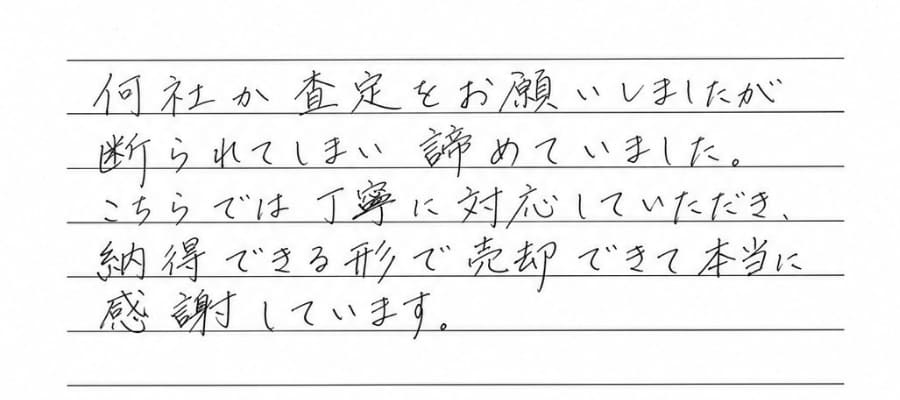 何社か査定をお願いしましたが
断られてしまい諦めていました。
こちらでは丁寧に対応していただき、
納得できる形で売却できて本当に
感謝しています。